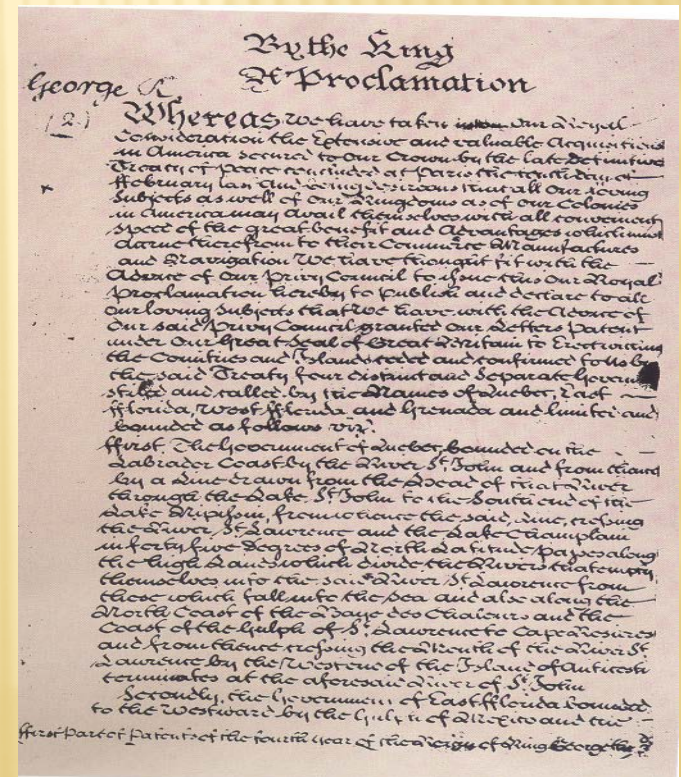 By the King
A Proclamation
George R
(2)
Whereas we have taken into Our Royal
Consideration the Extensive and valuable Acquisitions
in America secured to Our Crown by the late definitive
Treaty of Peace concluded at Paris the tenth day of
ffebruary last And being desirous that all Our loving
Subjects as well of Our Kingdoms as of our Colonies
in America may avail themselves with all convenient
speed of the great benefit and Advantages which must
accrue therefrom to their Commerce Manufactures
and Navigation We have thought fit with the
Advice of Our Privy Council to issue this Our Royal
Proclamation hereby to Publish and declare to all
Our loving Subjects that We have with the Advice of
Our said Privy Council granted Our Letters Patent
under Our Great Seal of Great Britain to Erect within
the Countries and Islands ceded and confirmed to Us by
the said Treaty four distinct and Separate
stiled and called by the Names of Quebec, East
fflorida, West fflorida, and Grenada and limited and
bounded as follows viz.
ffirst. The Government of Quebec, bounded on the
Labrador Coast by the River St. John and from thence
by a Line drawn from the Head of that River
through the Lake St. John to the South end of the
Lake Nipissin, from whence the said Line, crossing
the River St. Lawrence and the Lake Champlain
in forty five Degrees of North Latitude, passes along
the high Lands which divide the Rivers that empty
themselves into the said River St. Lawrence from
those which fall into the Sea and also along the
North Coast of the Baye des Chaleurs and the
Coast of the Gulph of St. Lawrence to Cape Rosieres
and from thence crossing the Mouth of the River St.
Lawrence by the West end of the Island of Anticosti
terminates at the aforesaid River of St. John
Secondly, the Government of East fflorida bounded
to the Westward by the Gulph of Mexico and the
ffirst Part of Patents of the fourth year of the Reign of King George the 3d